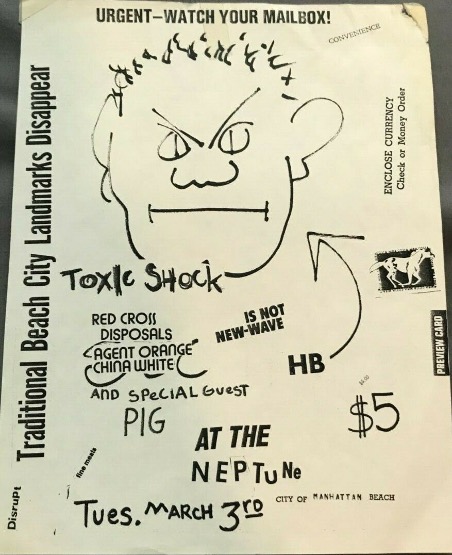 URGENT–WATCH YOUR MAILBOX!
CONVENIENCE
Traditional Beach City Landmarks Disappear
ENCLOSE CURRENCY
Check or Money Order
TOXIC SHOCK
RED CROSS
DISPOSALS
AGENT ORANGE
CHINA WHITE
IS NOT
NEW-WAVE
HB
PREVIEW CARD
AND SPECIAL GUEST
PIG
$5
AT THE
NEPTUNE
fine meals
Disrupt
CITY OF MANHATTAN BEACH
Tues. MARCH 3RD